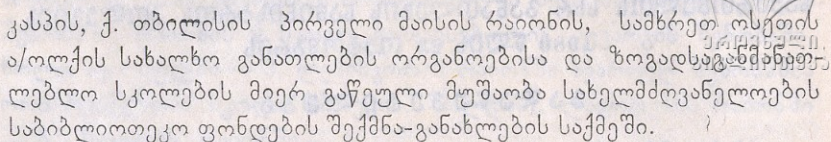 კასპის, ქ. თბილისის პირველი მაისის რაიონის, სამხრეთ ოსეთის
ა/ოლქის სახალხო განათლების ორგანოებისა და ზოგადსაგანმანათ-
ლებლო სკოლების მიერ გაწეული მუშაობა სახელმძღვანელოების
საბიბლიოთეკო ფონდების შექმნა-განახლების საქმეში.